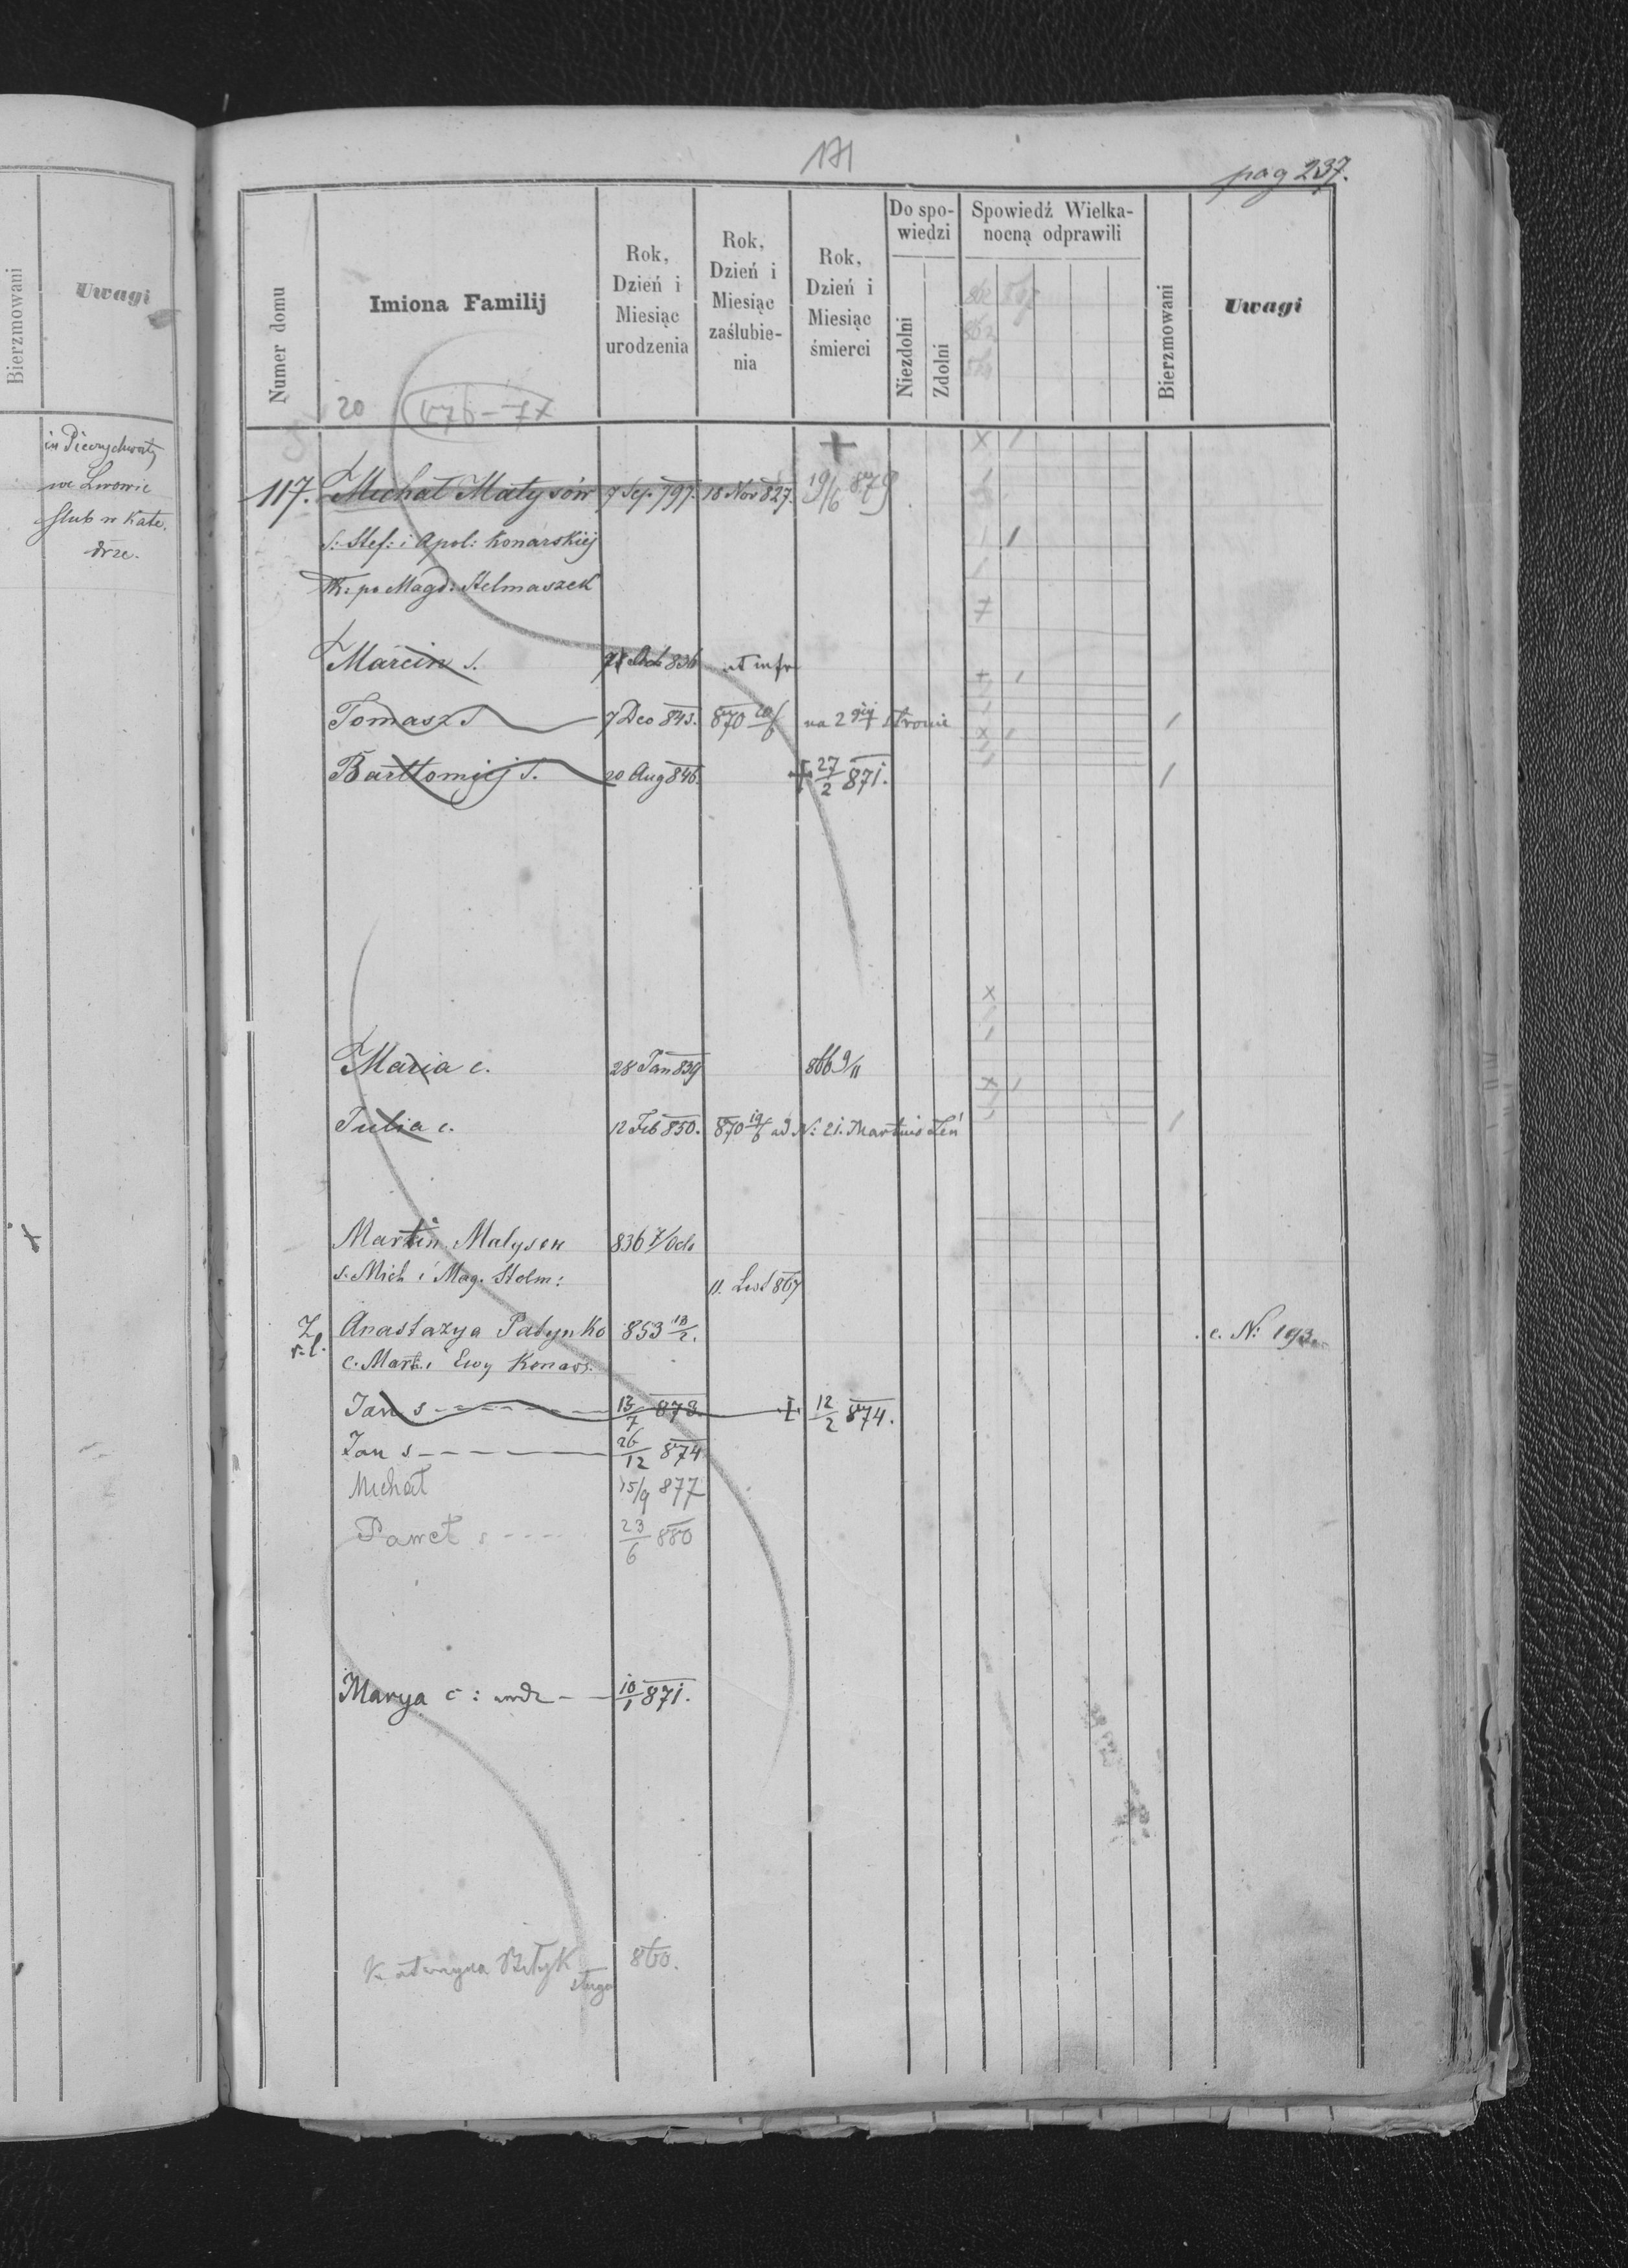 Bierzmowani
Uwagi
we Lwowie
ślub w Kate.
drze.
171
pag 237.
Numer domu
Imiona Familij
Rok,
Dzień i
Miesiąc
urodzenia
Rok,
Dzień i
Miesiąc
zaślubie-
nia
Rok,
Dzień i
Miesiąc
śmierci
Do spo-
wiedzi
Niezdolni
Zdolni
Spowiedź Wielka-
nocną odprawili
Bierzmowani
Uwagi
20
117. Michał Matysów 7 Sep. 797. 18 Nov 827. 19/6 879
s: Stef: i Apol: Konarskiej
W: po Magd: Stelmaszek
Marcin s. 836 ut infr
Tomasz s 7 Dec 843. 870 na 2 giej stronie
Bartłomiej s. 20 Aug 846. + 27/2 871.
Maria c. 28 Jan 839 866 9/11
Julia c. 12 Feb 850. 870 19/6 ad N: 21. Martinus Zeń
Martin Matysow 836 7/Oct
s. Mich i Mag. Stelm:
11. List 867
Ż. Anastazya Patynko 853 18/2. c. N: 193
r. l. c. Mart. i Ewy Konars.
Jan s 13/7 873. + 12/2 874.
Jan s 26/12 874
Michał 15/9 877
Paweł s 23/6 880
Marya c : urodz 10/1 871.
Katarzyna Biłyk 860.
sługa